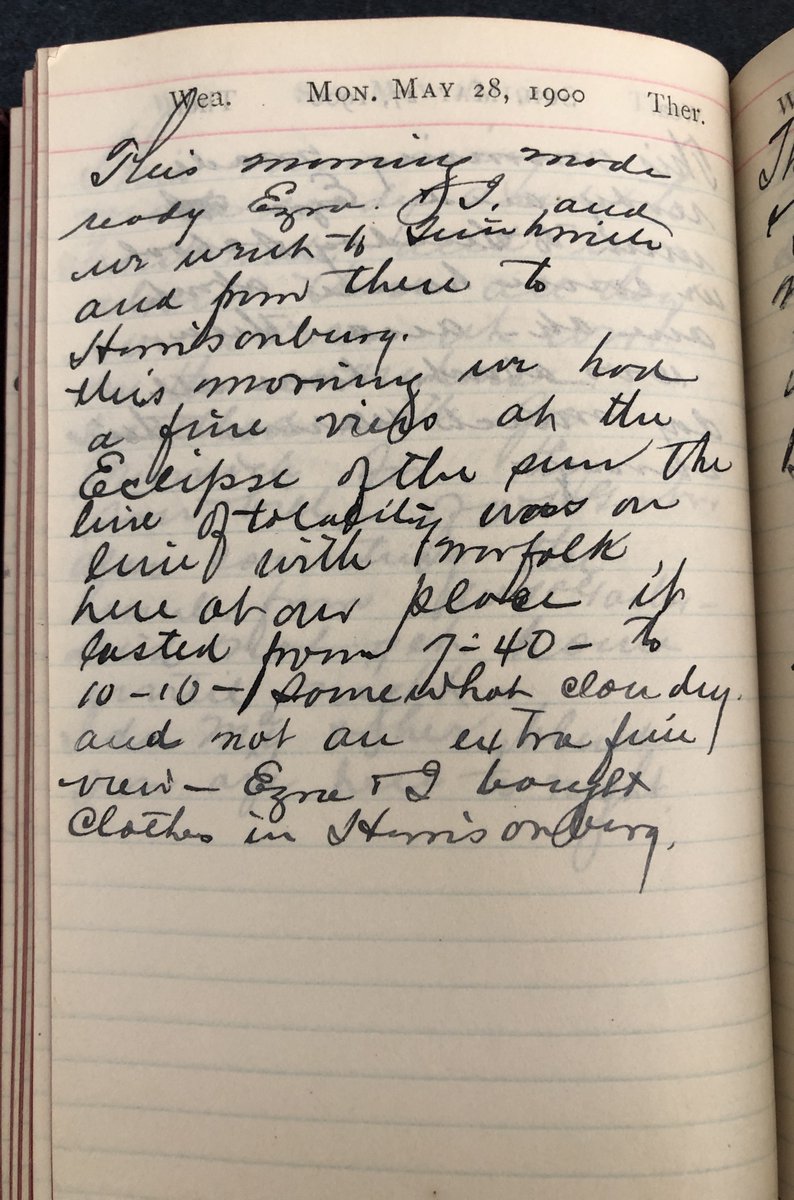 Wea. MON. MAY 28, 1900 Ther.
This morning made
ready Ezra & I. and
we went to
and from there to
Harrisonburg.
this morning we had
a fine view at the
Eclipse of the sun the
line of tolatity was on
line with Norfolk,
here at our place it
lasted from 7-40- to
10-10- somewhat cloudy.
and not an extra fine
view- Ezra & I bought
Clothes in Harrisonburg.